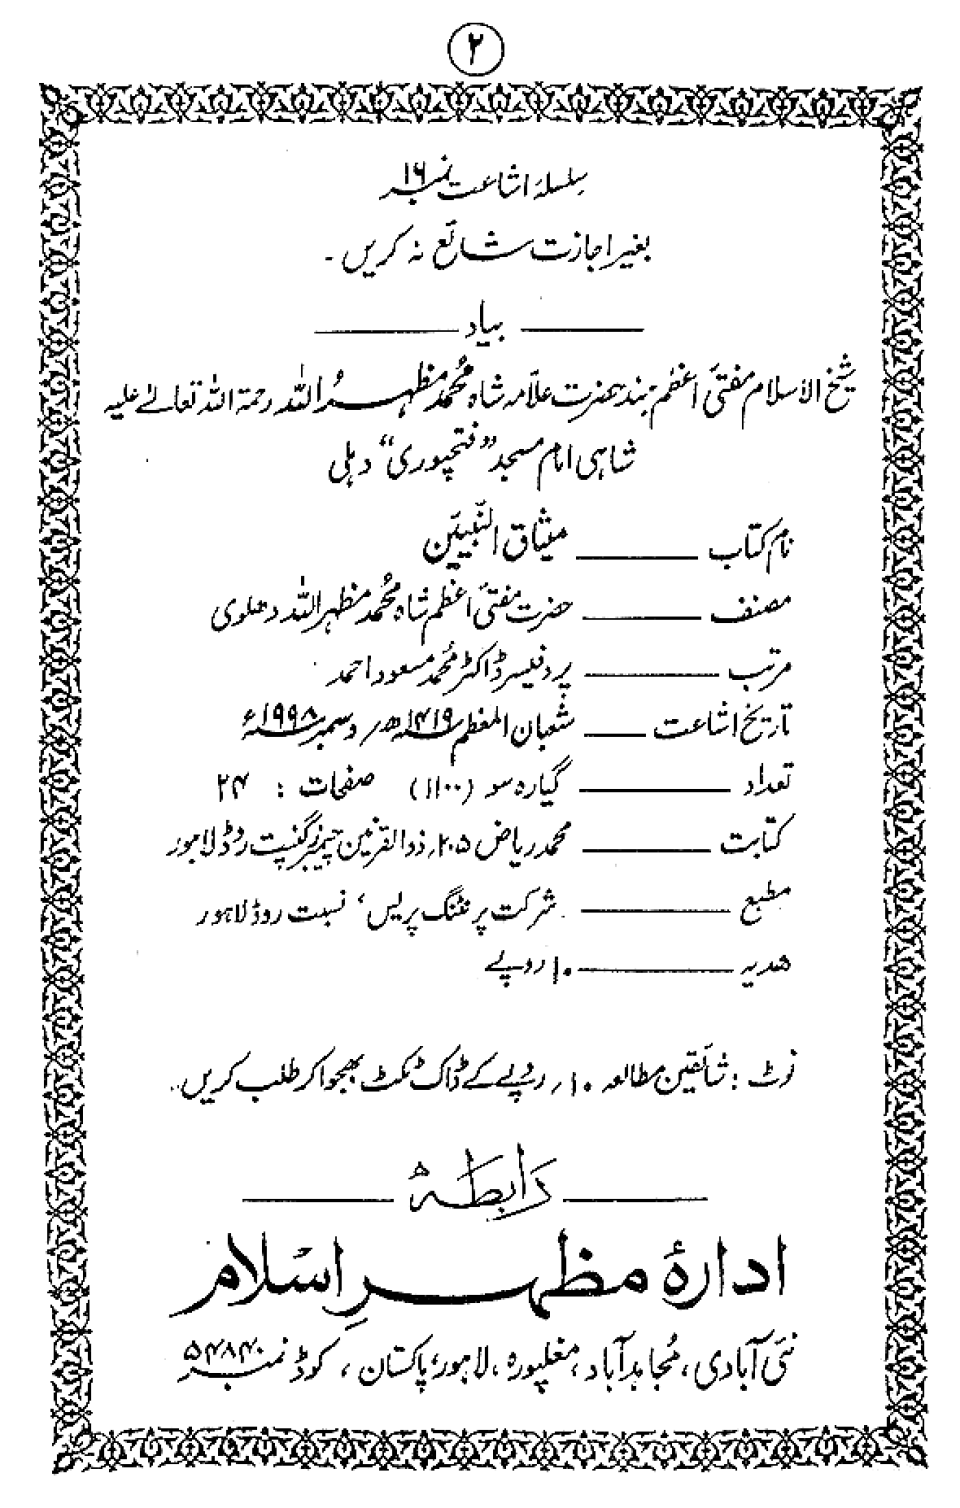 ۲
سلسلۂ اشاعت نمبر ۱۶
بغیر اجازت شائع نہ کریں ۔
بیاد
شیخ الاسلام مفتیٔ اعظم ہند حضرت علّامہ شاہ محمد مظہرُ اللہ رحمۃ اللہ تعالےٰ علیہ
شاہی امام مسجد ”فتحپوری“ دہلی
نام کتاب ــــــــ میثاق النّبیّین
مصنف ــــــــ حضرت مفتیٔ اعظم شاہ محمد مظہر اللہ دھلوی
مرتب ــــــــ پروفیسر ڈاکٹر محمد مسعود احمد
تاریخ اشاعت ــــــــ شعبان المعظم ۱۴۱۹ھ / دسمبر ۱۹۹۸ء
تعداد ــــــــ گیارہ سو (۱۱۰۰) صفحات : ۲۴
کتابت ــــــــ محمد ریاض ۲۰۵، ذوالقرنین چیمبرز گنپت روڈ لاہور
مطبع ــــــــ شرکت پرنٹنگ پریس، نسبت روڈ لاہور
ھدیہ ــــــــ ۱۰ روپے
نوٹ : شائقین مطالعہ ۱۰/ روپے کے ڈاک ٹکٹ بھجوا کر طلب کریں۔
رابطہ
ادارۂ مظہرِ اسلام
نئی آبادی، مُجاہد آباد، مغلپورہ، لاہور، پاکستان، کوڈ نمبر ۵۴۸۴۰